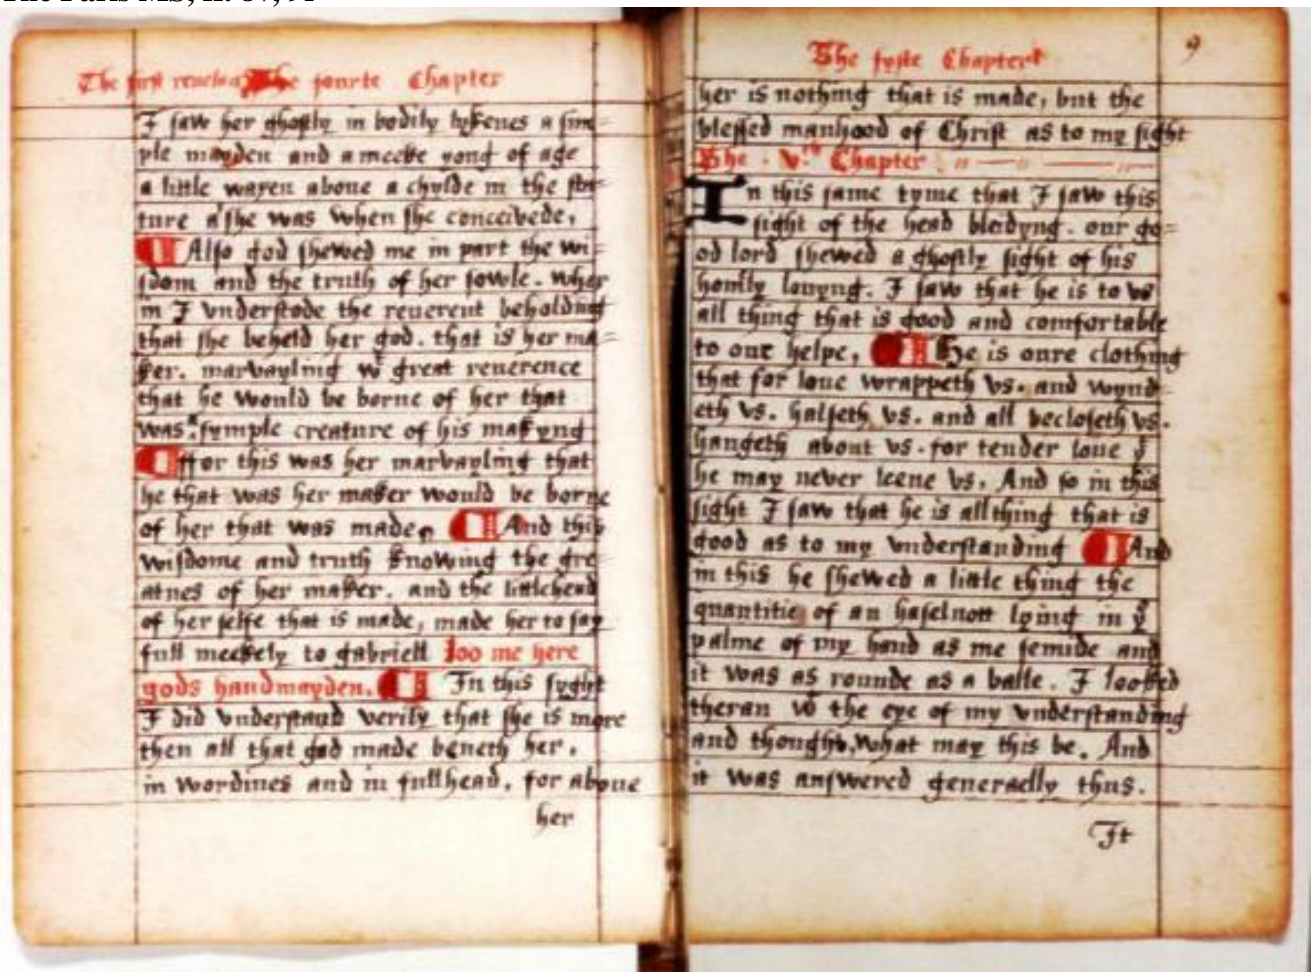 The first reuelac The fourte Chapter
I saw her ghostly in bodily lykenes a sim=
ple mayden and a meeke yong of age
a little waxen aboue a chylde in the sta=
ture as she was when she conceivede,
Also god shewed me in part the wi=
sdom and the truth of her sowle. wher
in I vnderstode the reuerent beholding
that she beheld her god. that is her ma=
ker. marvayling wt great reuerence
that he would be borne of her that
was a symple creature of his makyng
ffor this was her marvayling that
he that was her maker would be borne
of her that was made. And this
wisdome and truth knowing the gre=
atnes of her maker. and the littlehead
of her selfe that is made, made her to say
full meekely to gabriell loo me here
gods handmayden. In this syght
I did vnderstand verily that she is more
then all that god made beneth her.
in wordines and in fullhead, for aboue
her
The fyfte Chapter
9
her is nothing that is made, but the
blessed manhood of Christ as to my sight
The . V.th Chapter
In this same tyme that I saw this
sight of the head bleidyng. our go=
od lord shewed a ghostly sight of his
homly louyng. I saw that he is to vs
all thing that is good and comfortable
to our helpe, He is oure clothing
that for loue wrappeth vs. and wynd=
eth vs. halseth vs. and all becloseth vs.
hangeth about vs. for tender loue yt
he may never leeue vs. And so in this
sight I saw that he is all thing that is
good as to my vnderstanding And
in this he shewed a little thing the
quantitie of an haselnott lying in ye
palme of my hand as me semide and
it was as rounde as a balle. I looked
theran wt the eye of my vnderstanding
and thought, what may this be. And
it was answered generaelly thus.
It